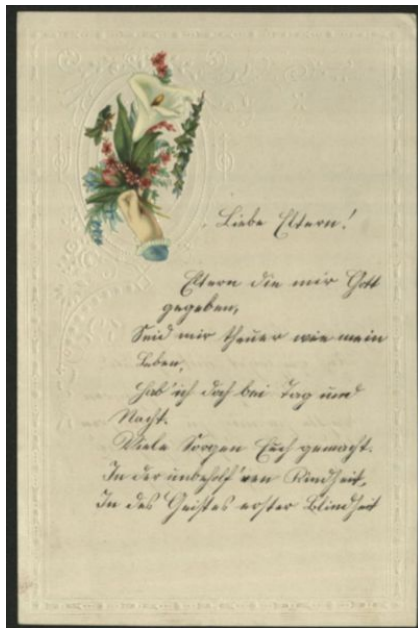 Liebe Eltern!
Eltern die mir Gott
gegeben,
Seid mir theuer wie mein
Leben,
Hab' ich doch bei Tag und
Nacht.
Viele Sorgen Euch gemacht.
In der unbeholf'nen Kindheit,
In des Geistes erster Blindheit